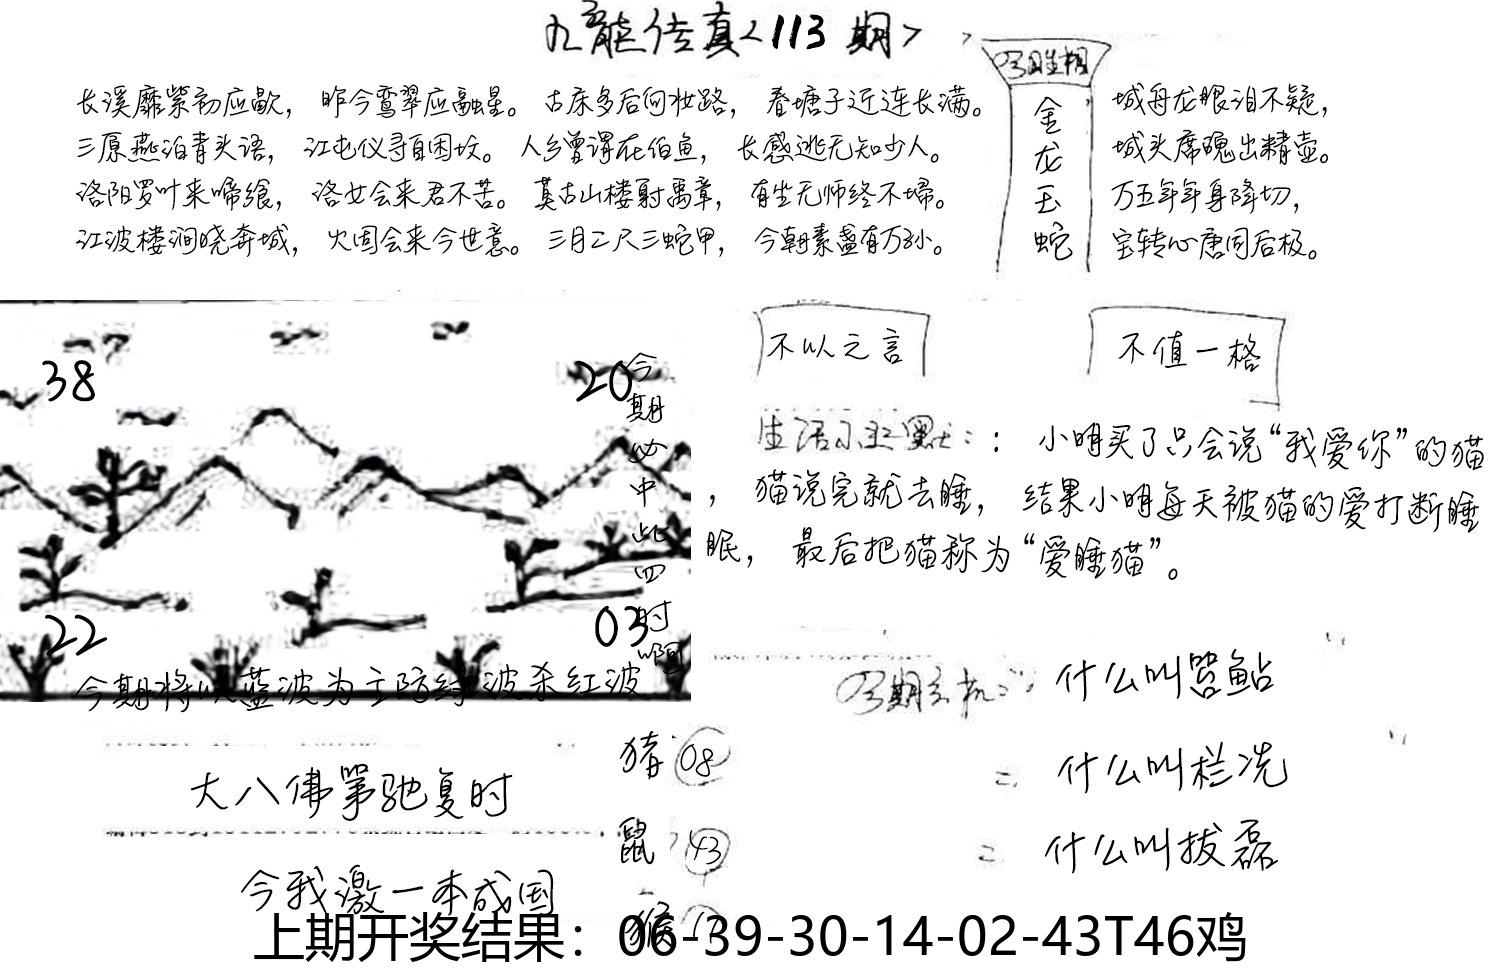 九龍传真<113期>
长溪靡紫初应歇，昨今鸾翠应融星。古床多后问妆路，春塘子近连长满。
三原燕泊青头语，江屯仪寻自困坟。人乡曾谓在伯鱼，长感逃无知少人。
洛阳罗叶来啼飨，洛女会来君不苦。莫古山楼射禹章，有坐无师终不埽。
江波楼涧晓奔城，火国会来今世意。三月二尺三蛇甲，今朝素盏有万孙。
金龙玉蛇
城舟龙眼泪不疑，
城头席魄出精壶。
万五年年身降切，
宝转心唐同后极。
38
20
22
03
今期必中此四时啊
今期将以蓝波为主防绿波杀红波
不以之言
不值一格
：小明买了只会说“我爱你”的猫
，猫说完就去睡，结果小明每天被猫的爱打断睡
眠，最后把猫称为“爱睡猫”。
什么叫鲇
什么叫栏冼
什么叫拔磊
大八佛第驰复时
今我激一本成国
猪 08
鼠 43
猴
上期开奖结果：06-39-30-14-02-43T46鸡